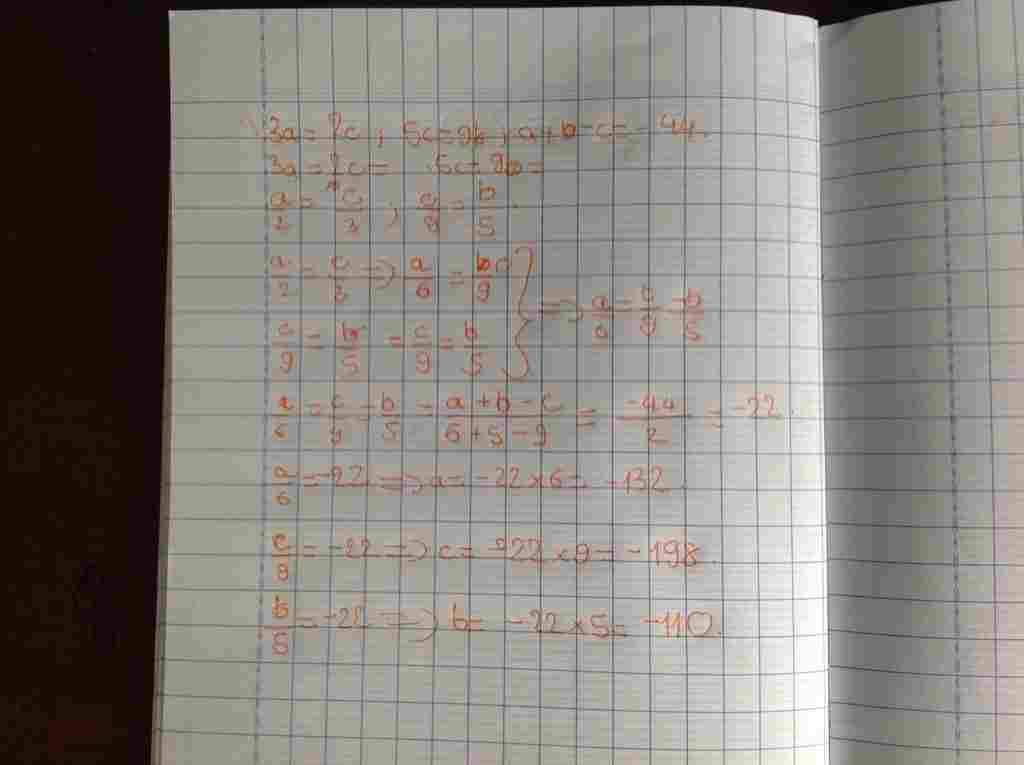 3a = 2c ; 5c = 9b ; a + b - c = -44.
3a = 2c = 5c = 9b =
a/2 = c/3 ; c/9 = b/5.
a/2 = c/3 => a/6 = c/9 } => a/6 = c/9 = b/5
c/9 = b/5 = c/9 = b/5
a/6 = c/9 = b/5 = (a + b - c)/(6 + 5 - 9) = -44/2 = -22.
a/6 = -22 => a = -22 x 6 = -132.
c/9 = -22 => c = -22 x 9 = -198.
b/5 = -22 => b = -22 x 5 = -110.